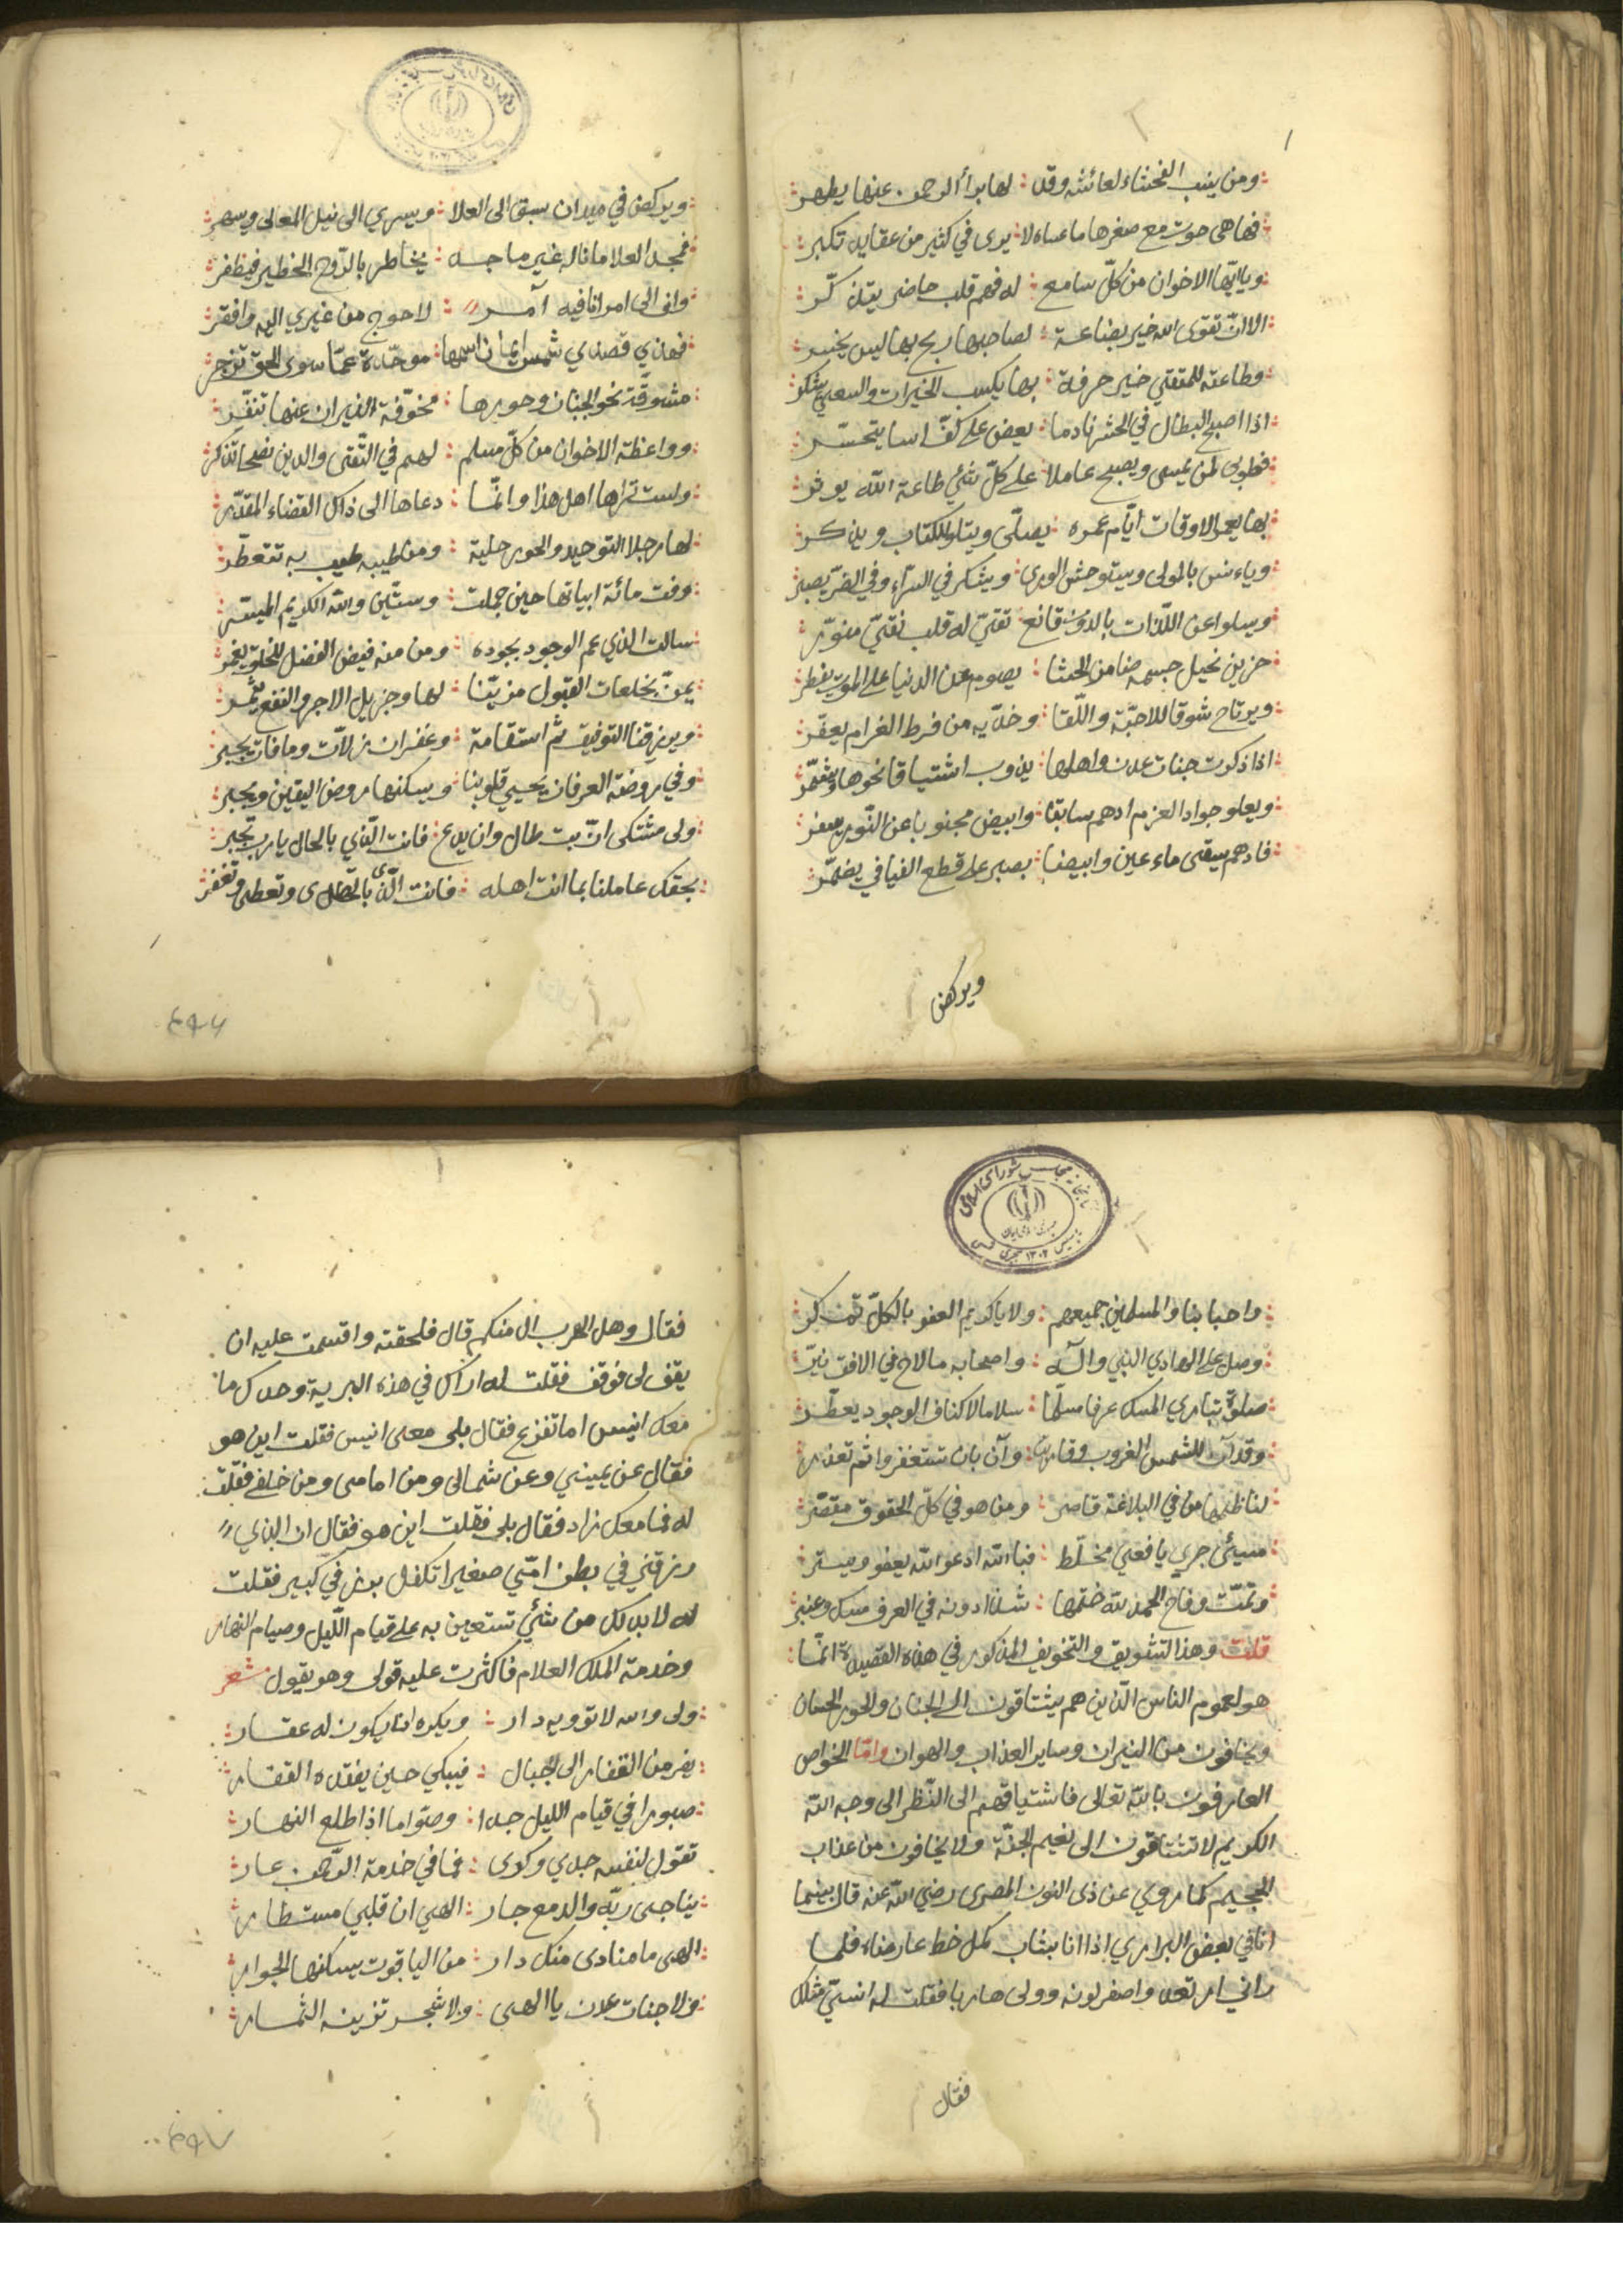 ومن ينسب الفحشاء لعائشة وقد : لها برأ الرحمن عنها يطهر
فها هي حوت مع صغرها ما عساه لا : يرى في كثير من عقايد تكبر
ويا ايها الاخوان من كل سامع : له فهم قلب حاضر يتذكر
الا ان تقوى الله خير بضاعة : لصاحبها ربح بها ليس يخسر
وطاعته للمتقي خير حرفة : بها يكسب الخيرات والسعي يشكر
اذا اصبح البطال في الحشر نادما : يعض على كف اسا يتحسر
فطوبى لمن يمسي ويصبح عاملا : على كل شئ طاعة الله يوثر
بها يعمر الاوقات ايام عمره : يصلى ويتلو الكتاب ويذكر
وياءنس بالمولى ويستوحش الورى : ويشكر في السراء وفي الضر يصبر
ويسلوا عن اللذات بالدون قانع : تقي له قلب نقي منور
حزين نحيل جسمه ضامن الحشا : يصوم عن الدنيا على الموت يفطر
ويرتاح شوقا للاحبة واللقا : وخديه من فرط الغرام يعفر
اذا ذكرت جنات عدن واهلها : يذوب اشتياقا نحوها ويشمر
ويعلو جواد العزم ادهم سابقا : وابيض مجنوبا عن النور يسفر
فادهم يسقى ماء عين وابيضا : بصبر على قطع الفيافي يضمر
ويركض
ويركض في ميدان سبق الى العلا : ويسري الى نيل المعالى ويسهر
فمجد العلا ما ناله غير ماجد : يخاطر بالروح الخطير فيظفر
وانى الى امر انا فيه آمر : لاحوج من غيري اليه وافقر
فهاذي قصيدي شمس ايمان اسمها : موحدة عما سوى الحق تزجر
مشوقة نحو الجنان وحورها : مخوفة النيران عنها تنفر
وواعظة الاخوان من كل مسلم : لهم في التقى والدين نصحا تذكر
ولست تراها اهل هذا وانما : دعاها الى ذاك القضاء المقدر
لها مرجلا التوحيد والحور حلية : ومن طيبه طيب به تتعطر
وفت مائة ابياتها حين جملت : وستين والله الكريم الميسر
سالت الذي عم الوجود بجوده : ومن منه فيض الفضل للخلق يغمر
يمن بخلعات القبول مزينا : لها وجزيل الاجر والنفع يثمر
ويرزقنا التوفيق ثم استقامة : وغفران زلات وما فات يجبر
وفي روضة العرفان يحيي قلوبنا : ويسكنها روض اليقين ويحبر
ولى مشتكى ان بت طال وان يدع : فانت الذي بالحال يا رب تخبر
بحقك عاملنا بما انت اهله : فانت الذى وتعطى وتغفر
واحبابنا والمسلمين جميعهم : ولا يا كريم العفو بالكل تمكر
وصل على الهادي النبي وآله : واصحابه ما لاح في الافق نير
صلوة تباري المسك عرفا مسلما : سلاما لاكناف الوجود يعطر
وقد آن للشمس الغروب وقاربت : وآن بان تستغفروا ثم تعذر
لناظمها من في البلاغة قاصر : ومن هو في كل الحقوق مقصر
مسيئ جري يافعي مخلط : فبالله ادعوا الله يعفو ويستر
وتمت وفاح الحمد لله ختمها : شذا دونه في العرف مسك وعنبر
قلت وهذا التشويق والتخويف المذكور في هذه القصيدة انما
هو لعموم الناس الذين هم يشتاقون الى الجنان والحور الحسان
ويخافون من النيران وساير العذاب والهوان واما الخواص
العارفون بالله تعالى فاشتياقهم الى النظر الى وجه الله
الكريم لا تشتاقون الى نعيم الجنة ولا يخافون من عذاب
الجحيم كما روي عن ذى النون المصرى رضي الله عنه قال بينما
انا في بعض البراري اذا انا بشاب كمل خط عارضاه فلما
راني ارتعد واصفر لونه وولى هاربا فقلت له انسي مثلك
فقال
فقال وهل الهرب الا منكم قال فلحقته واقسمت عليه ان
يقف لى فوقف فقلت له اراك في هذه البرية وحدك ما
معك انيس اما تفزع فقال بلى معى انيس فقلت اين هو
فقال عن يميني وعن شمالى ومن امامى ومن خلفي فقلت
له فما معك زاد فقال بلى فقلت اين هو فقال ان الذي
رزقني في بطن امي صغيرا تكفل برزقي كبير فقلت
له لا بد لك من شئ تستعين به على قيام الليل وصيام النهار
وخدمة الملك العلام فاكثرت عليه قولى وهو يقول شعر
ولى والله لا تؤويه دار : ويكره ان يكون له عقار
يفر من القفار الى الجبال : فيبكي حين يفقده القفار
صبورا في قيام الليل جدا : وصواما اذا طلع النهار
تقول لنفسه جدي وكدى : فما في خدمة الرحمن عار
يناجى ربه والدمع جار : الهي ان قلبي مستطار
الهى ما منادى منك دار : من الياقوت يسكنها الجوار
ولا جنات عدن يا الهى : ولا شجر تزينه الثمار